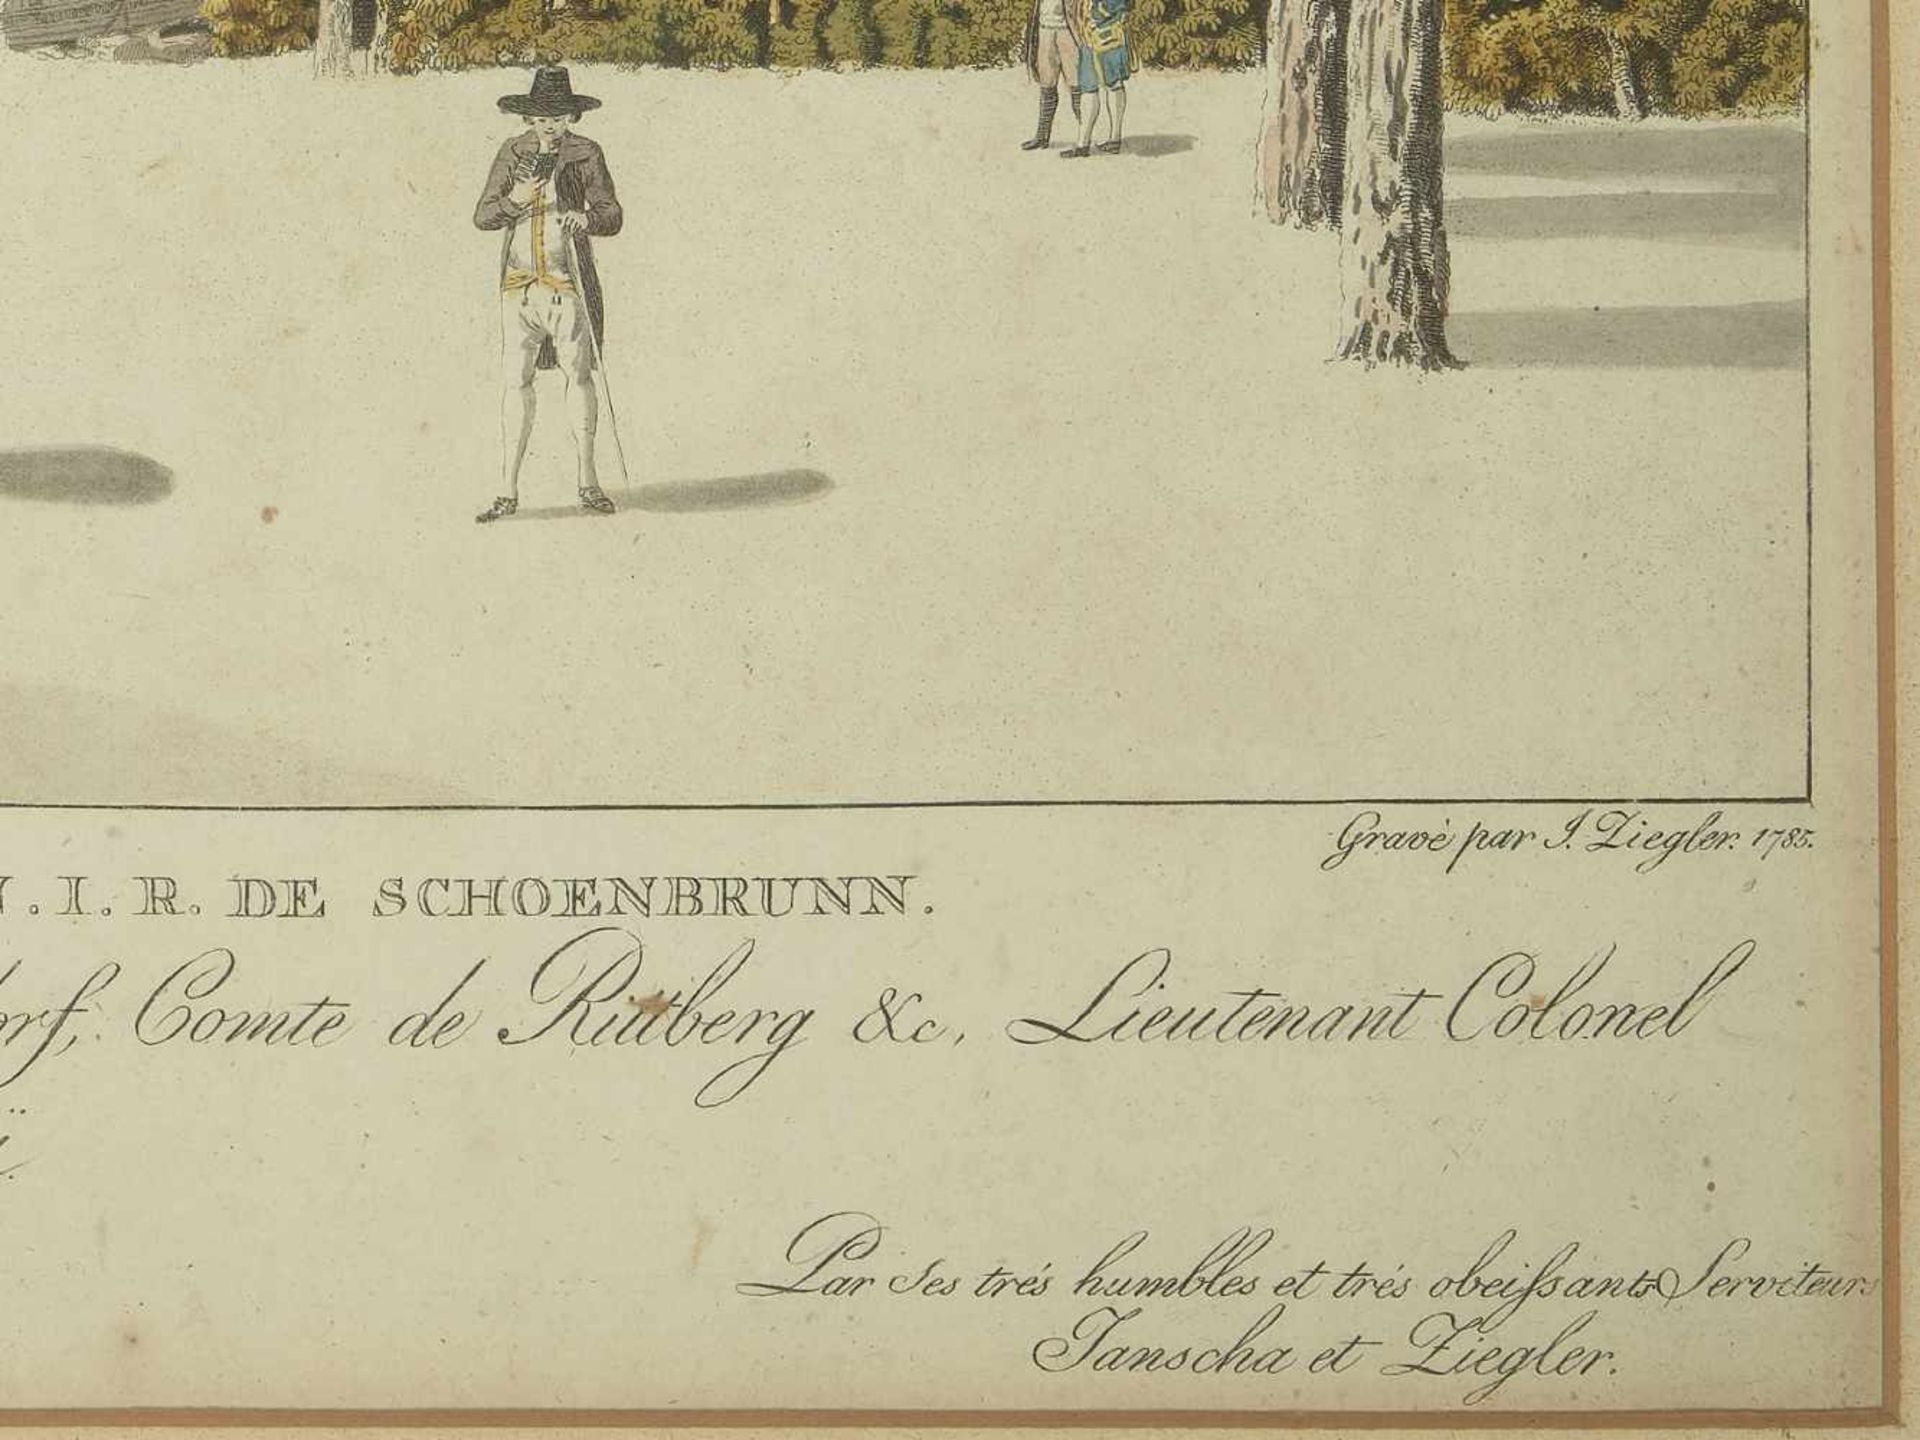 Gravè par J. Ziegler. 1785.
. I. R. DE SCHOENBRUNN.
orf, Comte de Rittberg &c, Lieutenant Colonel
Par ses trés humbles et trés obeiſsants Serviteurs
Janscha et Ziegler.